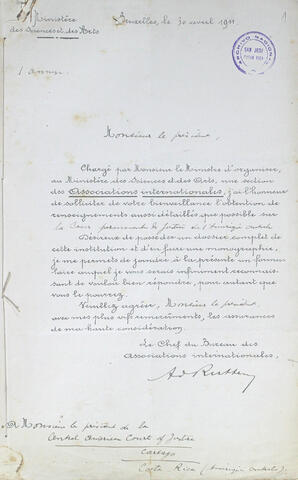 Ministère
des Sciences et des Arts
Bruxelles, le 30 avril 1911
1
ARCHIVO NACIONAL
SAN JOSE
COSTA RICA
1 annexe.
Monsieur le président,
Chargé par Monsieur le Ministre d'organiser,
au Ministère des Sciences et des Arts, une section
des Associations internationales, j'ai l'honneur
de solliciter de votre bienveillance l'obtention de
renseignements aussi détaillés que possible sur
la Cour permanente de justice de l'Amérique centrale
Désireux de posséder un dossier complet de
cette institution et d'en faire une monographie,
je me permets de joindre à la présente un formu-
laire auquel je vous serais infiniment reconnais-
sant de vouloir bien répondre, pour autant que
vous le pourrez.
Veuillez agréer, Monsieur le président,
avec mes plus vifs remercîments, les assurances
de ma haute considération.
Le Chef du Bureau des
Associations internationales,
A Monsieur le président de la
Central American Court of Justice
Cartago
Costa Rica (Amérique centrale)